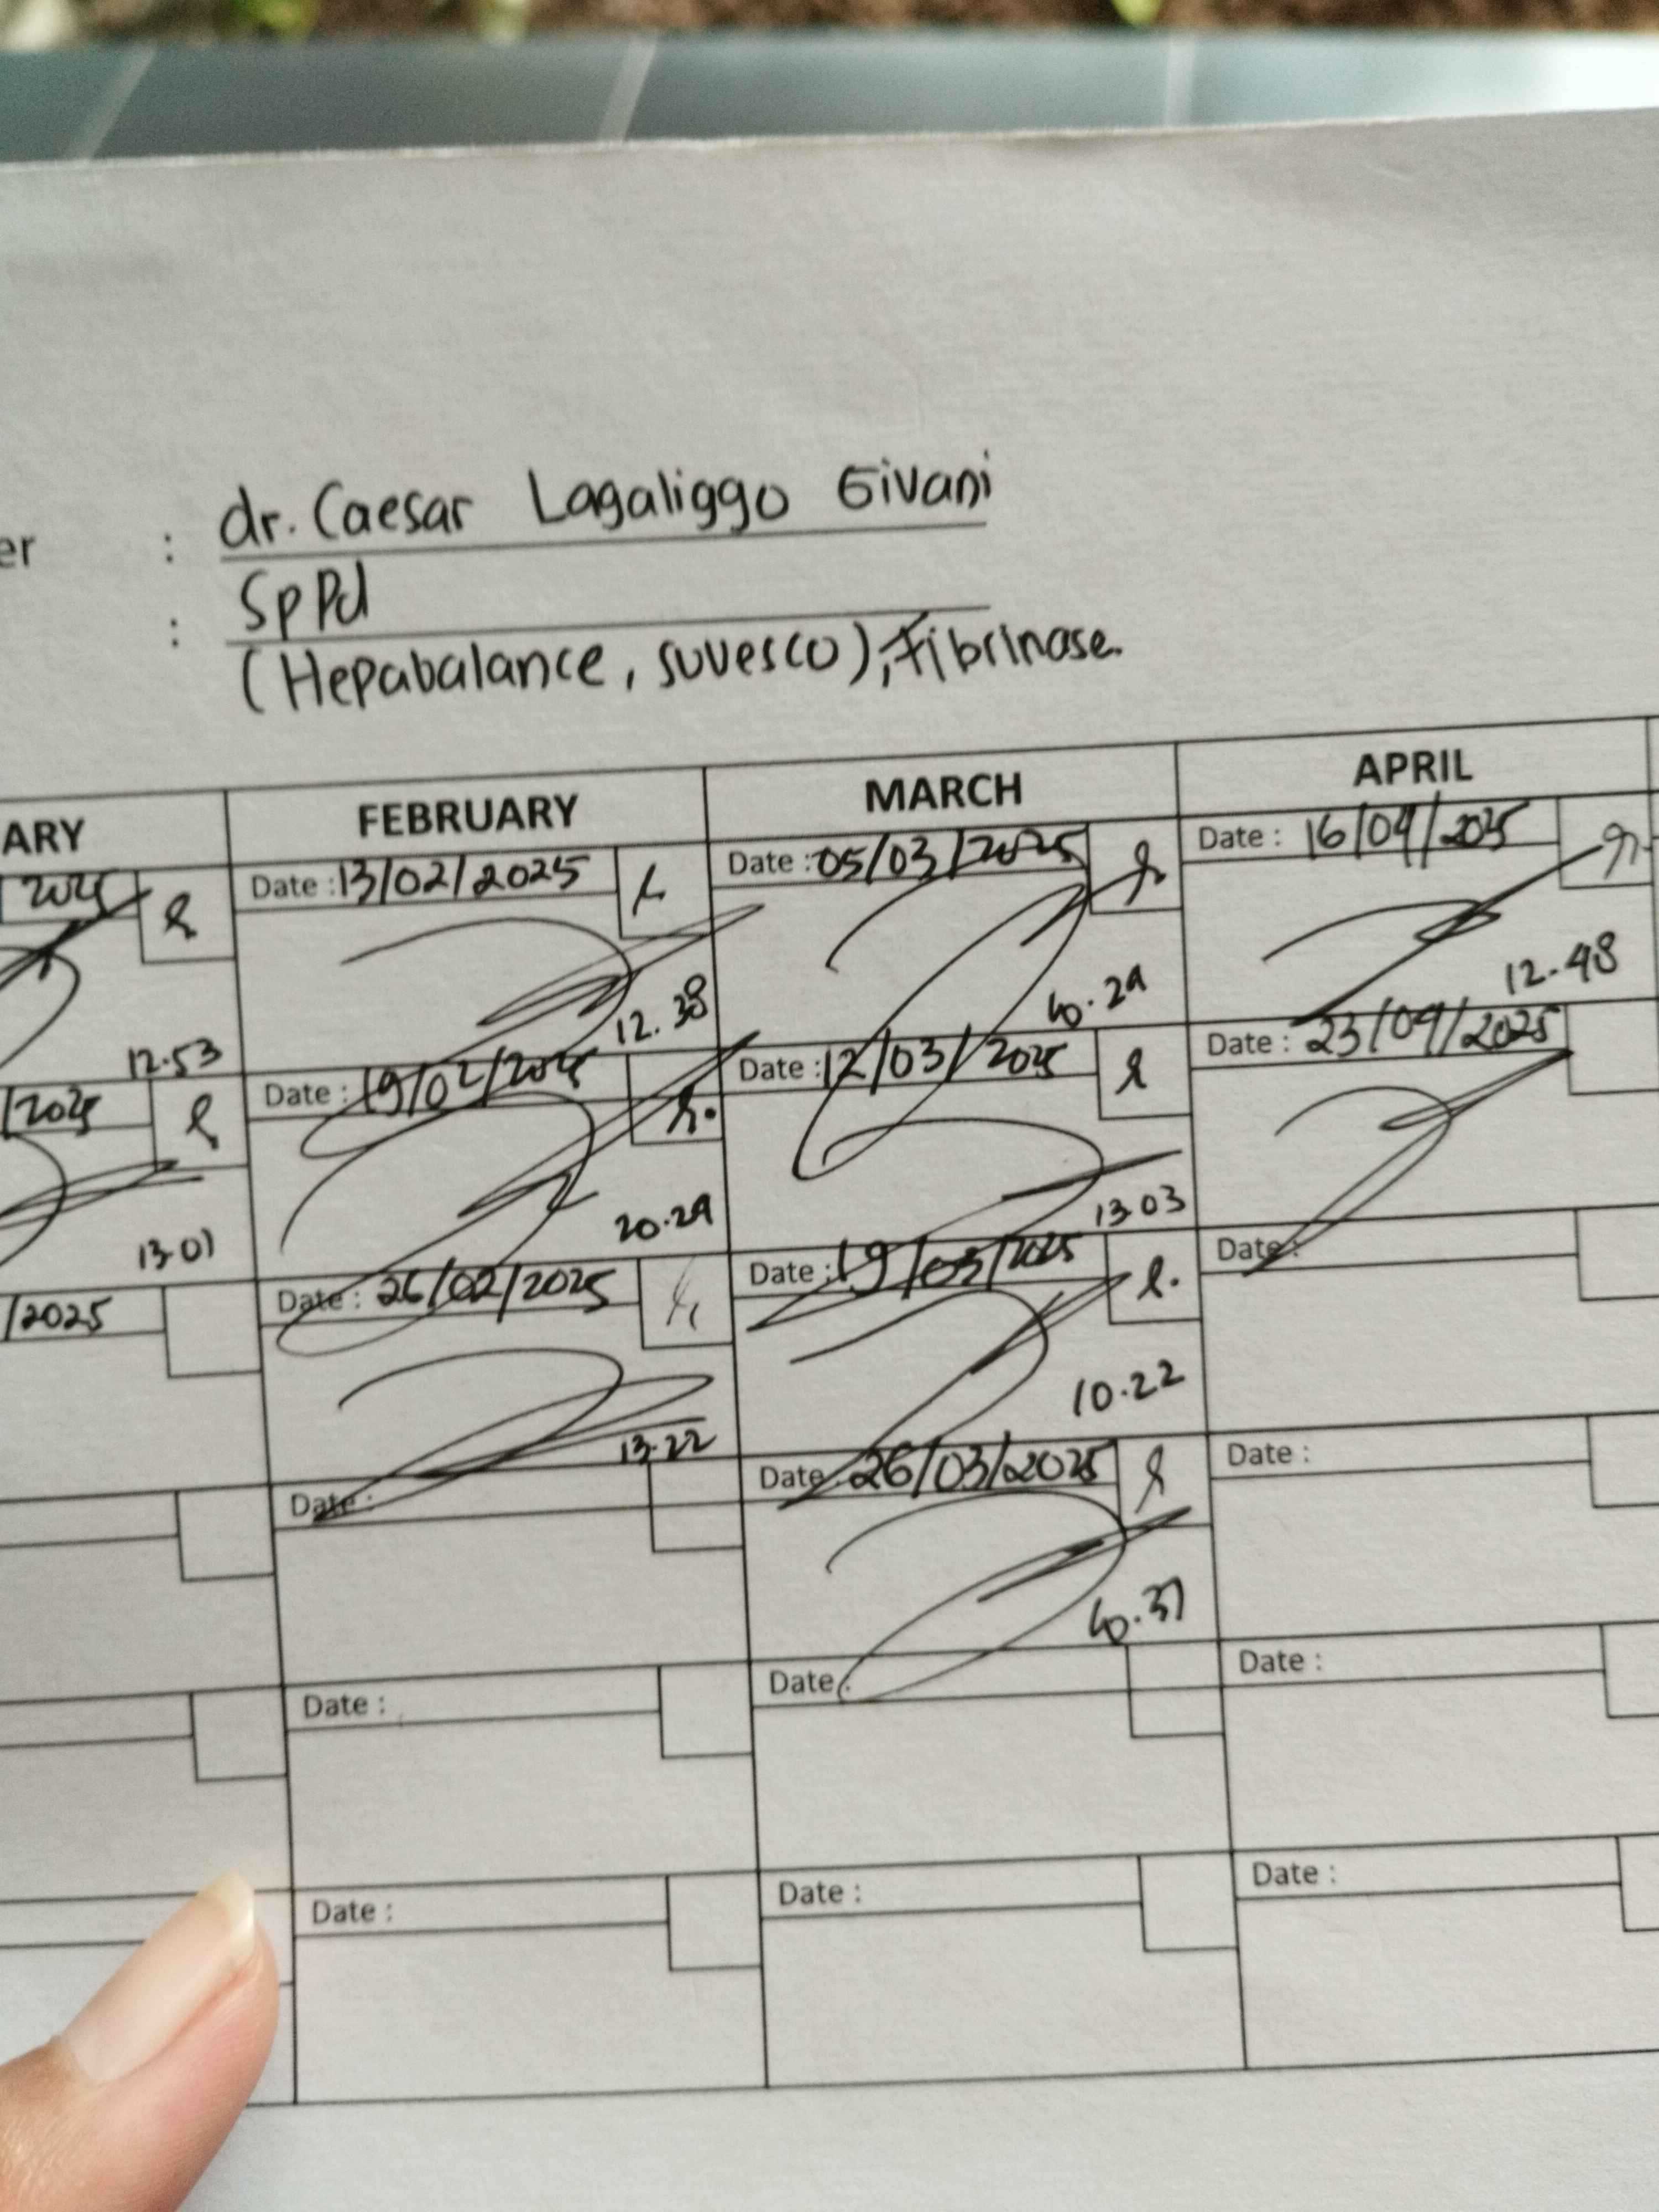 er : dr. Caesar Lagaliggo Givani
: SpPd
(Hepabalance, suvesco), Fibrinase.
ARY FEBRUARY MARCH APRIL
2025 Date : 13/02/2025 Date : 05/03/2025 Date : 16/04/2025
12.53 12.38 29 12.48
/2025 Date : 19/02/2025 Date : 12/03/2025 Date : 23/04/2025
13.01 20.29 13.03
/2025 Date : 26/02/2025 Date : 19/03/2025 Date :
13.22 10.22
Date : Date : 26/03/2025 Date :
Date : Date : Date :
Date : Date : Date :